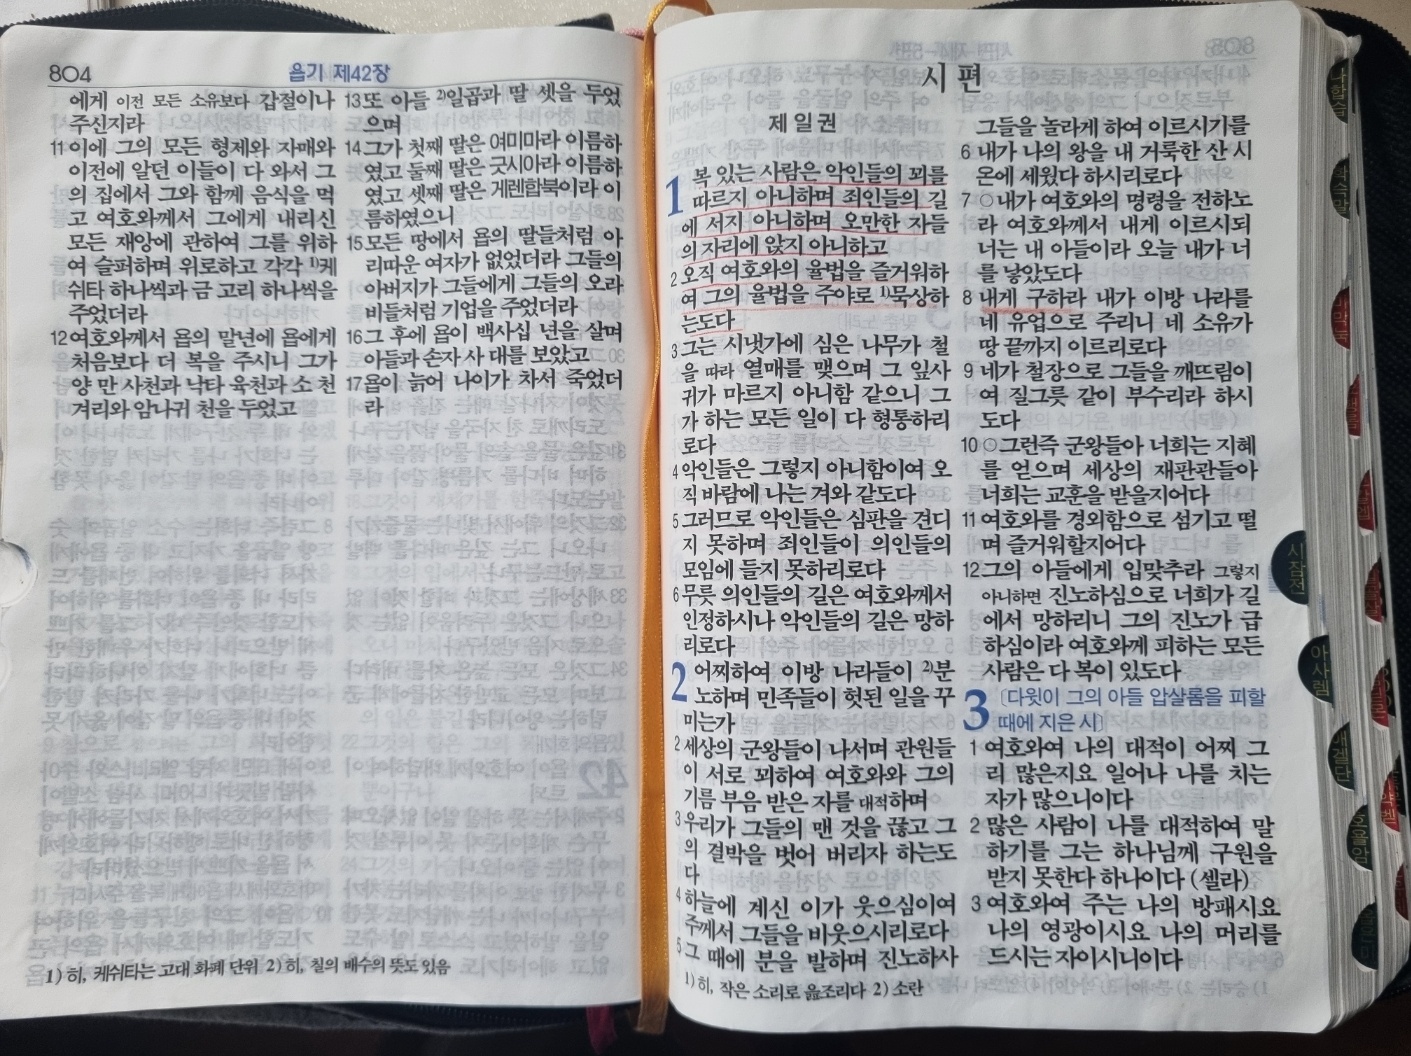 804
욥기 제42장
에게 이전 모든 소유보다 갑절이나
주신지라
11 이에 그의 모든 형제와 자매와
이전에 알던 이들이 다 와서 그
의 집에서 그와 함께 음식을 먹
고 여호와께서 그에게 내리신
모든 재앙에 관하여 그를 위하
여 슬퍼하며 위로하고 각각 1)케
쉬타 하나씩과 금 고리 하나씩을
주었더라
12 여호와께서 욥의 말년에 욥에게
처음보다 더 복을 주시니 그가
양 만 사천과 낙타 육천과 소 천
겨리와 암나귀 천을 두었고
13 또 아들 2)일곱과 딸 셋을 두었
으며
14 그가 첫째 딸은 여미마라 이름하
였고 둘째 딸은 긋시아라 이름하
였고 셋째 딸은 게렌합북이라 이
름하였으니
15 모든 땅에서 욥의 딸들처럼 아
리따운 여자가 없었더라 그들의
아버지가 그들에게 그들의 오라
비들처럼 기업을 주었더라
16 그 후에 욥이 백사십 년을 살며
아들과 손자 사 대를 보았고
17 욥이 늙어 나이가 차서 죽었더
라
1) 히, 케쉬타는 고대 화폐 단위 2) 히, 칠의 배수의 뜻도 있음
시 편
제 일 권
1 복 있는 사람은 악인들의 꾀를
따르지 아니하며 죄인들의 길
에 서지 아니하며 오만한 자들
의 자리에 앉지 아니하고
2 오직 여호와의 율법을 즐거워하
여 그의 율법을 주야로 1)묵상하
는도다
3 그는 시냇가에 심은 나무가 철
을 따라 열매를 맺으며 그 잎사
귀가 마르지 아니함 같으니 그
가 하는 모든 일이 다 형통하리
로다
4 악인들은 그렇지 아니함이여 오
직 바람에 나는 겨와 같도다
5 그러므로 악인들은 심판을 견디
지 못하며 죄인들이 의인들의
모임에 들지 못하리로다
6 무릇 의인들의 길은 여호와께서
인정하시나 악인들의 길은 망하
리로다
2 어찌하여 이방 나라들이 2)분
노하며 민족들이 헛된 일을 꾸
미는가
2 세상의 군왕들이 나서며 관원들
이 서로 꾀하여 여호와와 그의
기름 부음 받은 자를 대적하며
3 우리가 그들의 맨 것을 끊고 그
의 결박을 벗어 버리자 하는도
다
4 하늘에 계신 이가 웃으심이여
주께서 그들을 비웃으시리로다
5 그 때에 분을 발하며 진노하사
1) 히, 작은 소리로 읊조리다 2) 소란
그들을 놀라게 하여 이르시기를
6 내가 나의 왕을 내 거룩한 산 시
온에 세웠다 하시리로다
7 ○내가 여호와의 명령을 전하노
라 여호와께서 내게 이르시되
너는 내 아들이라 오늘 내가 너
를 낳았도다
8 내게 구하라 내가 이방 나라를
네 유업으로 주리니 네 소유가
땅 끝까지 이르리로다
9 네가 철장으로 그들을 깨뜨림이
여 질그릇 같이 부수리라 하시
도다
10 ○그런즉 군왕들아 너희는 지혜
를 얻으며 세상의 재판관들아
너희는 교훈을 받을지어다
11 여호와를 경외함으로 섬기고 떨
며 즐거워할지어다
12 그의 아들에게 입맞추라 그렇지
아니하면 진노하심으로 너희가 길
에서 망하리니 그의 진노가 급
하심이라 여호와께 피하는 모든
사람은 다 복이 있도다
3 〔다윗이 그의 아들 압살롬을 피할
때에 지은 시〕
1 여호와여 나의 대적이 어찌 그
리 많은지요 일어나 나를 치는
자가 많으니이다
2 많은 사람이 나를 대적하여 말
하기를 그는 하나님께 구원을
받지 못한다 하나이다 (셀라)
3 여호와여 주는 나의 방패시요
나의 영광이시요 나의 머리를
드시는 자이시니이다
시잠전
아사렘
애겔단
호욜암